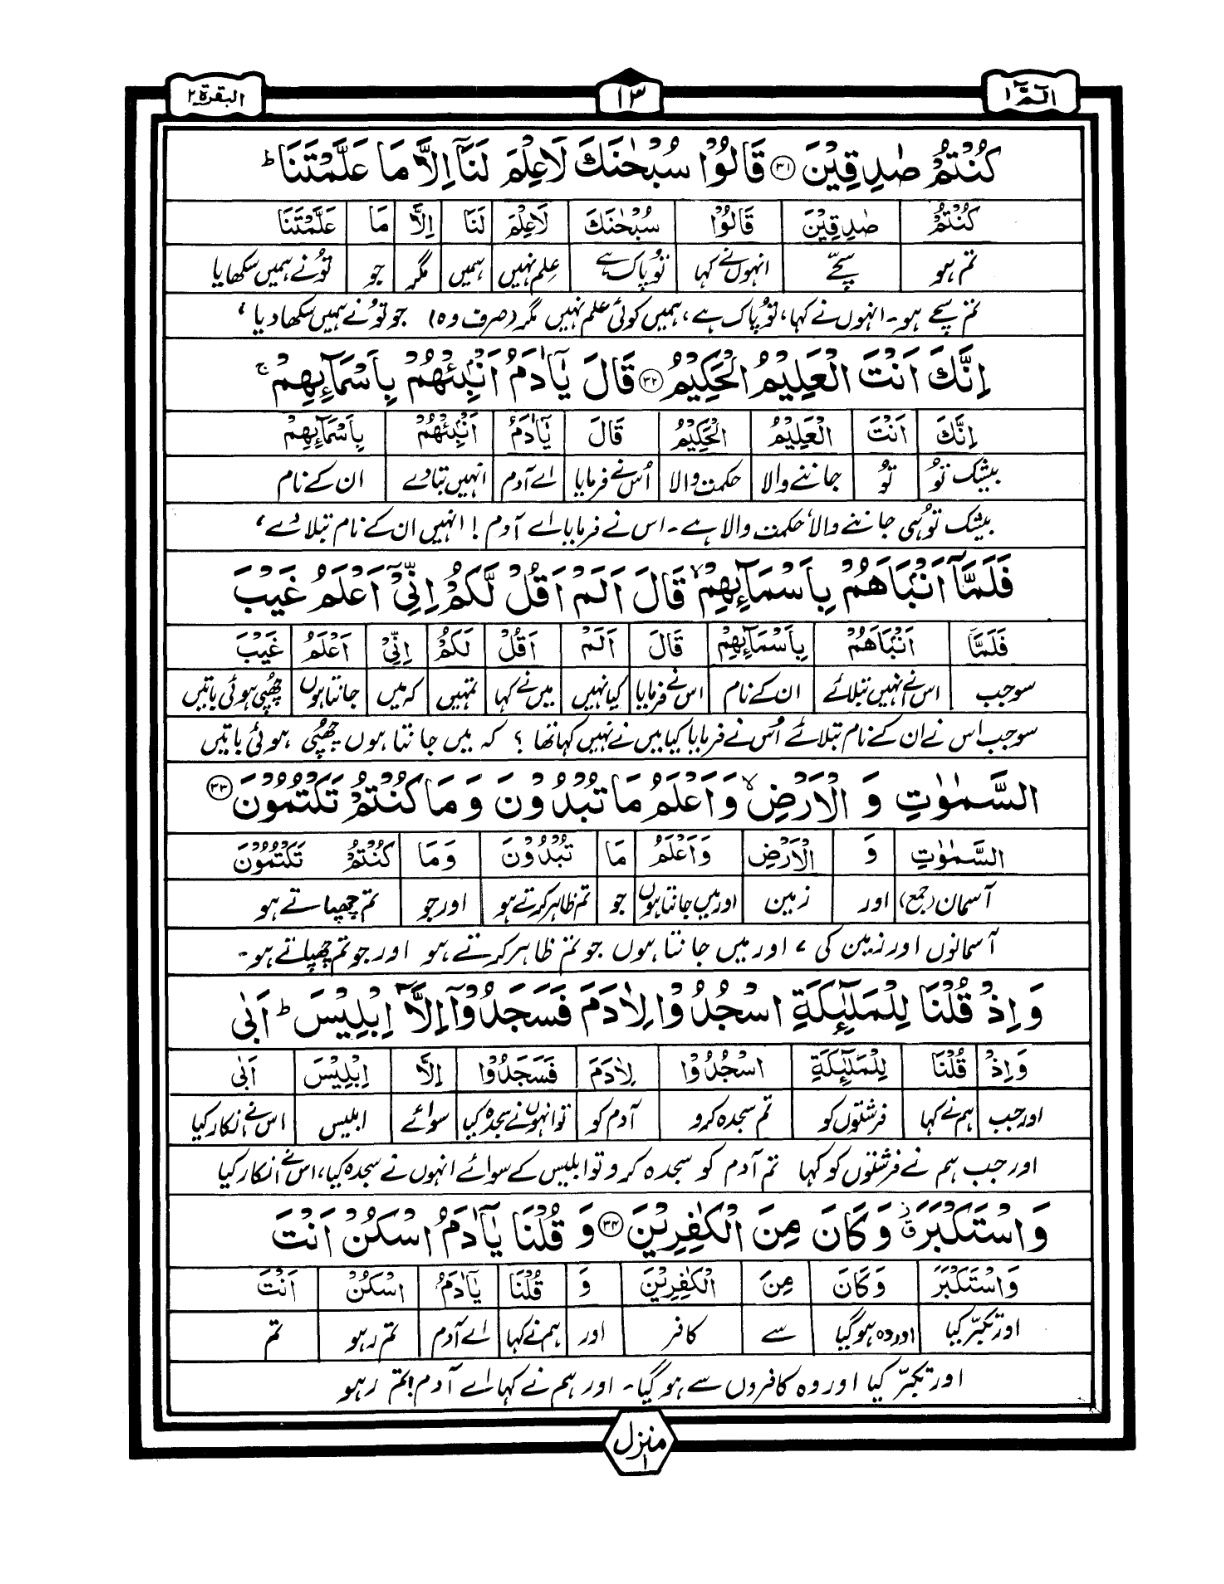 الٓمّٓ ۱ ۱۳ البقرة ۲
كُنْتُمْ صٰدِقِيْنَ ﴿۳۱﴾ قَالُوْا سُبْحٰنَكَ لَاعِلْمَ لَنَآ اِلَّا مَا عَلَّمْتَنَا ؕ
كُنْتُمْ صٰدِقِيْنَ قَالُوْا سُبْحٰنَكَ لَاعِلْمَ لَنَا اِلَّا مَا عَلَّمْتَنَا
تم ہو سچّے انہوں نے کہا تو پاک ہے علم نہیں ہمیں مگر جو تونے ہمیں سکھایا
تم سچے ہو۔ انہوں نے کہا، تو پاک ہے، ہمیں کوئی علم نہیں مگر (صرف وہ) جو تونے ہمیں سکھا دیا ،
اِنَّكَ اَنْتَ الْعَلِيْمُ الْحَكِيْمُ ﴿۳۲﴾ قَالَ يٰٓاٰدَمُ اَنْۢبِئْهُمْ بِاَسْمَآئِهِمْ ۚ
اِنَّكَ اَنْتَ الْعَلِيْمُ الْحَكِيْمُ قَالَ يٰٓاٰدَمُ اَنْۢبِئْهُمْ بِاَسْمَآئِهِمْ
بیشک تو تو جاننے والا حکمت والا اُس نے فرمایا اے آدم انہیں بتادے ان کے نام
بیشک تو ہی جاننے والا حکمت والا ہے۔ اس نے فرمایا اے آدم ! انہیں ان کے نام بتلا دے ،
فَلَمَّآ اَنْۢبَاَهُمْ بِاَسْمَآئِهِمْ ۙ قَالَ اَلَمْ اَقُلْ لَّكُمْ اِنِّيْٓ اَعْلَمُ غَيْبَ
فَلَمَّا اَنْۢبَاَهُمْ بِاَسْمَآئِهِمْ قَالَ اَلَمْ اَقُلْ لَكُمْ اِنِّيْ اَعْلَمُ غَيْبَ
سو جب اس نے انہیں بتلائے ان کے نام اس نے فرمایا کیا نہیں میں نے کہا تمہیں کہ میں جانتا ہوں چھپی ہوئی باتیں
سو جب اس نے ان کے نام بتلائے اُس نے فرمایا کیا میں نے نہیں کہا تھا ؟ کہ میں جانتا ہوں چھپی ہوئی باتیں
السَّمٰوٰتِ وَ الْاَرْضِ ۙ وَاَعْلَمُ مَا تُبْدُوْنَ وَمَا كُنْتُمْ تَكْتُمُوْنَ ﴿۳۳﴾
السَّمٰوٰتِ وَ الْاَرْضِ وَاَعْلَمُ مَا تُبْدُوْنَ وَمَا كُنْتُمْ تَكْتُمُوْنَ
آسمان (جمع) اور زمین اور میں جانتا ہوں جو تم ظاہر کرتے ہو اور جو تم چھپاتے ہو
آسمانوں اور زمین کی ، اور میں جانتا ہوں جو تم ظاہر کرتے ہو اور جو تم چھپاتے ہو۔
وَاِذْ قُلْنَا لِلْمَلٰٓئِكَةِ اسْجُدُوْا لِاٰدَمَ فَسَجَدُوْٓا اِلَّآ اِبْلِيْسَ ؕ اَبٰى
وَاِذْ قُلْنَا لِلْمَلٰٓئِكَةِ اسْجُدُوْا لِاٰدَمَ فَسَجَدُوْا اِلَّا اِبْلِيْسَ اَبٰى
اور جب ہم نے کہا فرشتوں کو تم سجدہ کرو آدم کو تو انہوں نے سجدہ کیا سوائے ابلیس اس نے انکار کیا
اور جب ہم نے فرشتوں کو کہا تم آدم کو سجدہ کرو تو ابلیس کے سوائے انہوں نے سجدہ کیا، اس نے انکار کیا
وَاسْتَكْبَرَ ۫ۗ وَكَانَ مِنَ الْكٰفِرِيْنَ ﴿۳۴﴾ وَ قُلْنَا يٰٓاٰدَمُ اسْكُنْ اَنْتَ
وَاسْتَكْبَرَ وَكَانَ مِنَ الْكٰفِرِيْنَ وَ قُلْنَا يٰٓاٰدَمُ اسْكُنْ اَنْتَ
اور تکبّر کیا اور وہ ہو گیا سے کافر اور ہم نے کہا اے آدم تم رہو تم
اور تکبّر کیا اور وہ کافروں سے ہو گیا۔ اور ہم نے کہا اے آدم! تم رہو
منزل ۱